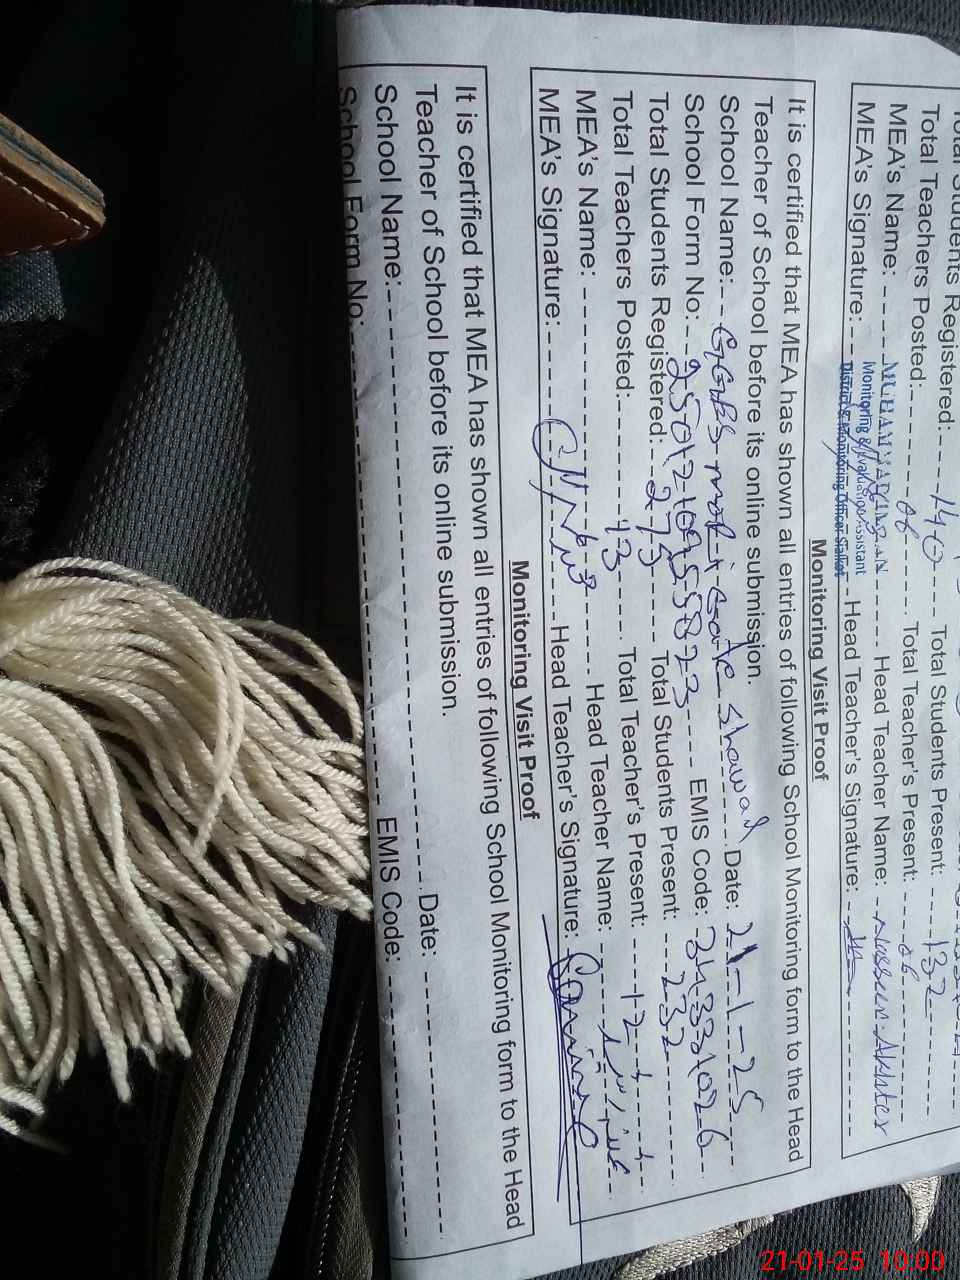 Total Students Registered: 140 Total Students Present: 132
Total Teachers Posted: 06 Total Teacher's Present: 06
MEA's Name: MUHAMMAD Head Teacher Name: Nasseem Akhter
Monitoring & Evaluation Assistant
MEA's Signature: Head Teacher's Signature:
District Monitoring Officer Sialkot
Monitoring Visit Proof
It is certified that MEA has shown all entries of following School Monitoring form to the Head
Teacher of School before its online submission.
School Name: GGPS Date: 21-1-25
School Form No: EMIS Code: 34331026
Total Students Registered: 275 Total Students Present: 232
Total Teachers Posted: 13 Total Teacher's Present: 12
MEA's Name: Head Teacher Name:
MEA's Signature: Head Teacher's Signature:
Monitoring Visit Proof
It is certified that MEA has shown all entries of following School Monitoring form to the Head
Teacher of School before its online submission.
School Name: Date:
School Form No: EMIS Code:
21-01-25 10:00